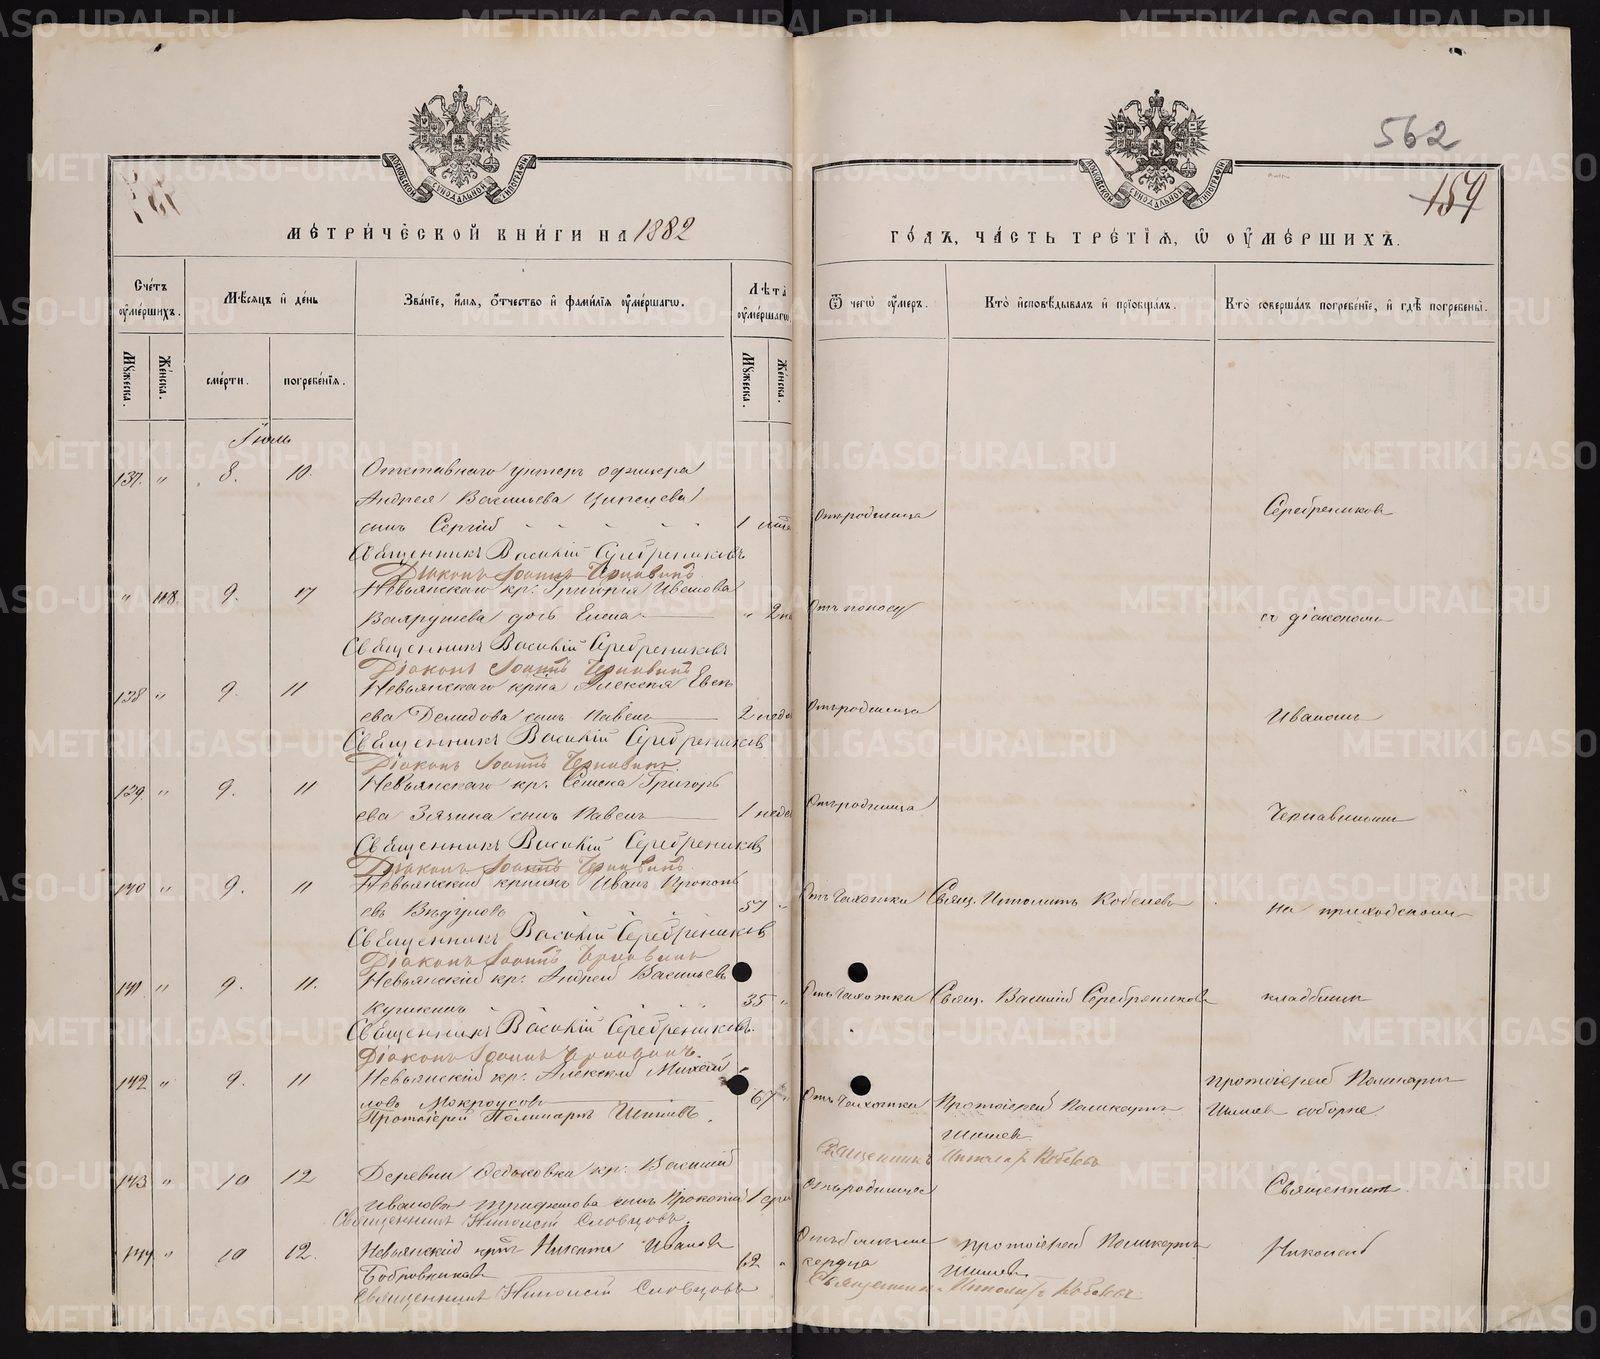 562
159
МЕТРИЧЕСКОЙ КНИГИ НА 1882
ГОДЪ, ЧАСТЬ ТРЕТІЯ, Ѡ ОУМЕРШИХЪ.
Счетъ оумершихъ.
Мѣсяцъ и день
Званіе, имя, отчество и фамилія оумершагѡ.
Лѣта оумершагѡ.
Ѿ чегѡ оумеръ.
Кто исповѣдывалъ и пріобщалъ.
Кто совершалъ погребеніе, и гдѣ погребены.
Мужеска.
Женска.
смерти.
погребенія.
Мужеска.
Женска.
Іюль
137. " 8. 10. Отставнаго унтеръ офицера
Андрея Васильева
сынъ Сергій 1 Отъ родимца Серебрениковъ
Священникъ Василій Серебрениковъ
Діаконъ Іоаннъ Чернавинъ
" 118. 9. Невьянскаго кр. Григорія Иванова
дочь Елена " 2 Отъ поносу съ діакономъ
Священникъ Василій Серебрениковъ
Діаконъ Іоаннъ Чернавинъ
138 " 9. 11 Невьянскаго крна Алексѣя Евсѣ
ева Демидова сынъ Павелъ 2 недѣ Отъ родимца Іваномъ
Священникъ Василій Серебрениковъ
Діаконъ Іоаннъ Чернавинъ
139. " 9. 11 Невьянскаго кр. Григорь
ева сынъ Павелъ 1 недѣ Отъ родимца Чернавинымъ
Священникъ Василій Серебрениковъ
Діаконъ Іоаннъ Чернавинъ
140 " 9. 11 Невьянскій Иванъ Прокопь
евъ 57 " Отъ чахотки Свящ. Ипполитъ Кобелевъ на приходскомъ
Священникъ Василій Серебрениковъ
Діаконъ Іоаннъ Чернавинъ
141 " 9. 11. Невьянскій кр. Андрей Васильевъ
35 " Отъ чахотки Свящ. Василій Серебрениковъ кладбищѣ
Священникъ Василій Серебрениковъ.
Діаконъ Іоаннъ Чернавинъ.
142 " 9. 11 Невьянскій кр. Алексѣй Михай
ловъ Мокроусовъ 67 " Отъ чахотки Протоіерей Поликарпъ
Шишевъ
протоіерей Поликарпъ
Шишевъ соборне
Протоіерей Поликарпъ Шишевъ.
Священникъ Ипполитъ Кобелевъ
143 " 10 12 Деревни кр. Василія
Иванова сынъ Прокопій 1 Отъ родимца Священникъ
Священникъ Николай Словцовъ.
144 " 10 12. Невьянскій Никита Ивановъ
Бобровниковъ 62 " сердца протоіерей Поликарпъ
Шишевъ Николай
Священникъ Николай Словцовъ
Священникъ Ипполитъ Кобелевъ
METRIKI.GASO-URAL.RU